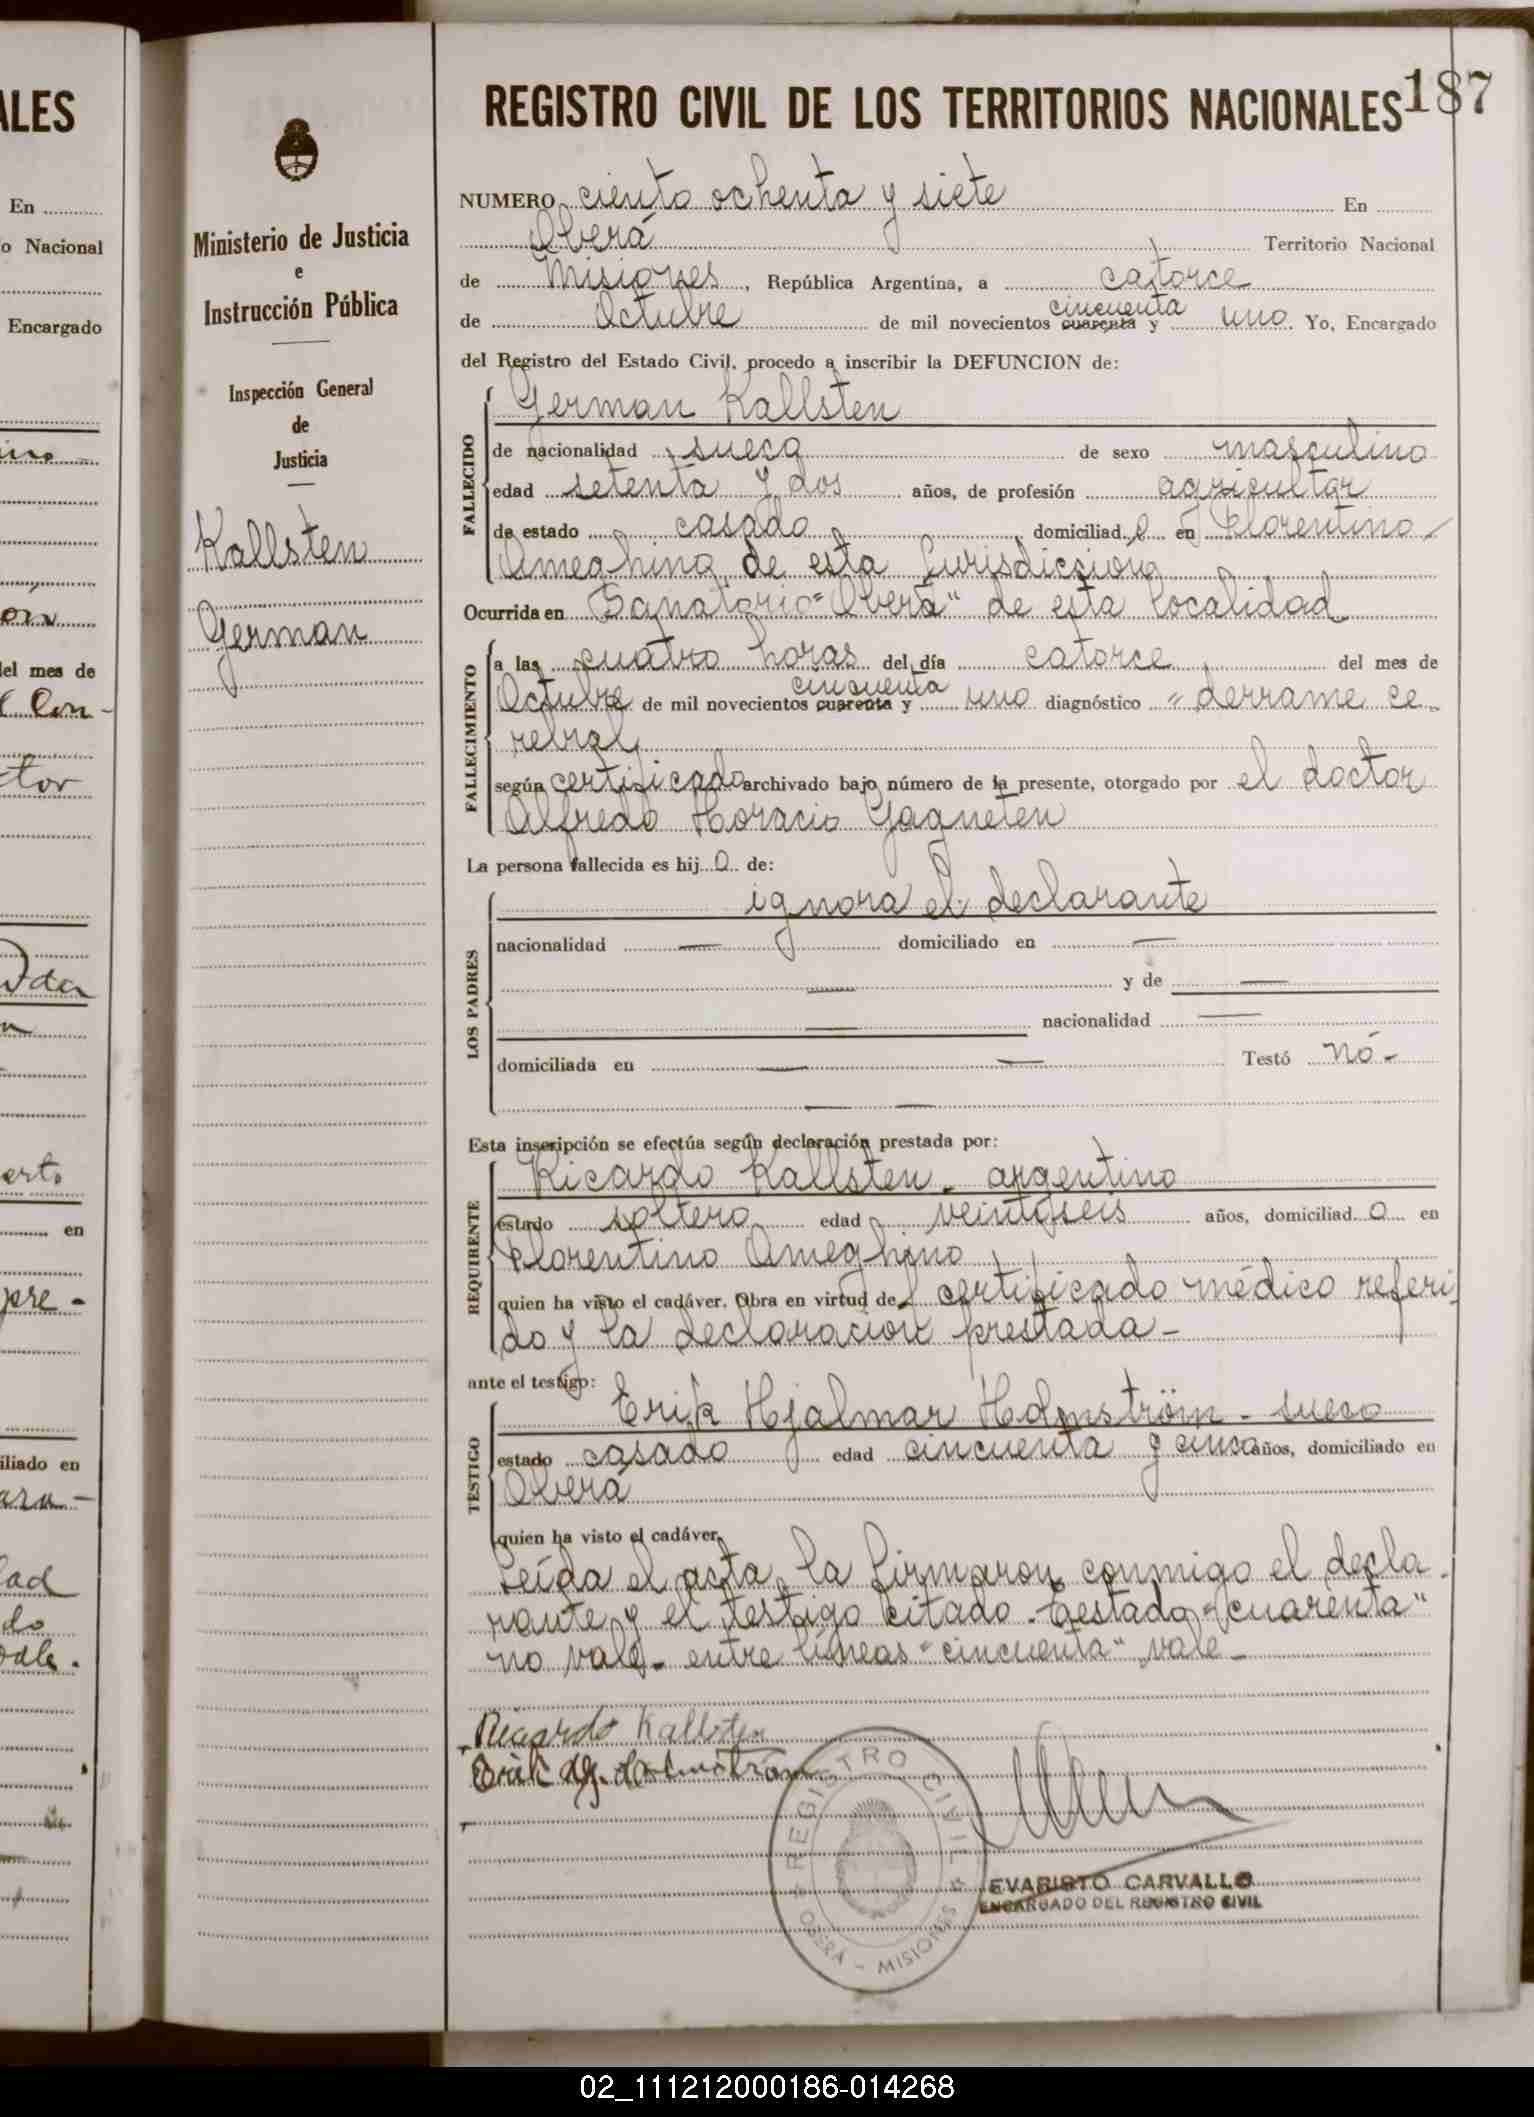 ALES
En
o Nacional
Encargado
ón
del mes de
tor
erto
en
pre-
iliado en
dad
do
Ministerio de Justicia
e
Instrucción Pública
Inspección General
de
Justicia
Kallsten
German
REGISTRO CIVIL DE LOS TERRITORIOS NACIONALES 187
NUMERO ciento ochenta y siete En
Oberá Territorio Nacional
de Misiones, República Argentina, a catorce
de Octubre de mil novecientos cuarenta cincuenta y uno. Yo, Encargado
del Registro del Estado Civil, procedo a inscribir la DEFUNCION de:
FALLECIDO
German Kallsten
de nacionalidad sueca de sexo masculino
edad setenta y dos años, de profesión agricultor
de estado casado domiciliad o en Florentino
Ameghino de esta Jurisdiccion
Ocurrida en Sanatorio "Oberá" de esta localidad
FALLECIMIENTO
a las cuatro horas del día catorce del mes de
Octubre de mil novecientos cuarenta cincuenta y uno diagnóstico "derrame ce
rebral
según certificado archivado bajo número de la presente, otorgado por el doctor
Alfredo Horacio Gagneten
La persona fallecida es hij o de:
LOS PADRES
ignora el declarante
nacionalidad — domiciliado en —
— y de —
— nacionalidad —
domiciliada en — — Testó nó-
— —
Esta inscripción se efectúa según declaración prestada por:
REQUIRENTE
Ricardo Kallsten - argentino
estado soltero edad veintiseis años, domiciliad o en
Florentino Ameghino
quien ha visto el cadáver. Obra en virtud de certificado médico referi
do y la declaracion prestada -
ante el testigo:
TESTIGO
Erik Hjalmar Holmström - sueco
estado casado edad cincuenta y cinco años, domiciliado en
Oberá
quien ha visto el cadáver.
Leída el acta, la firmaron conmigo el decla-
rante y el testigo citado. Testado "cuarenta"
no vale - entre líneas "cincuenta" vale -
Ricardo Kallsten
Erik Hj. Holmström
REGISTRO CIVIL
OBERA - MISIONES
EVARISTO CARVALLO
ENCARGADO DEL REGISTRO CIVIL
02_111212000186-014268